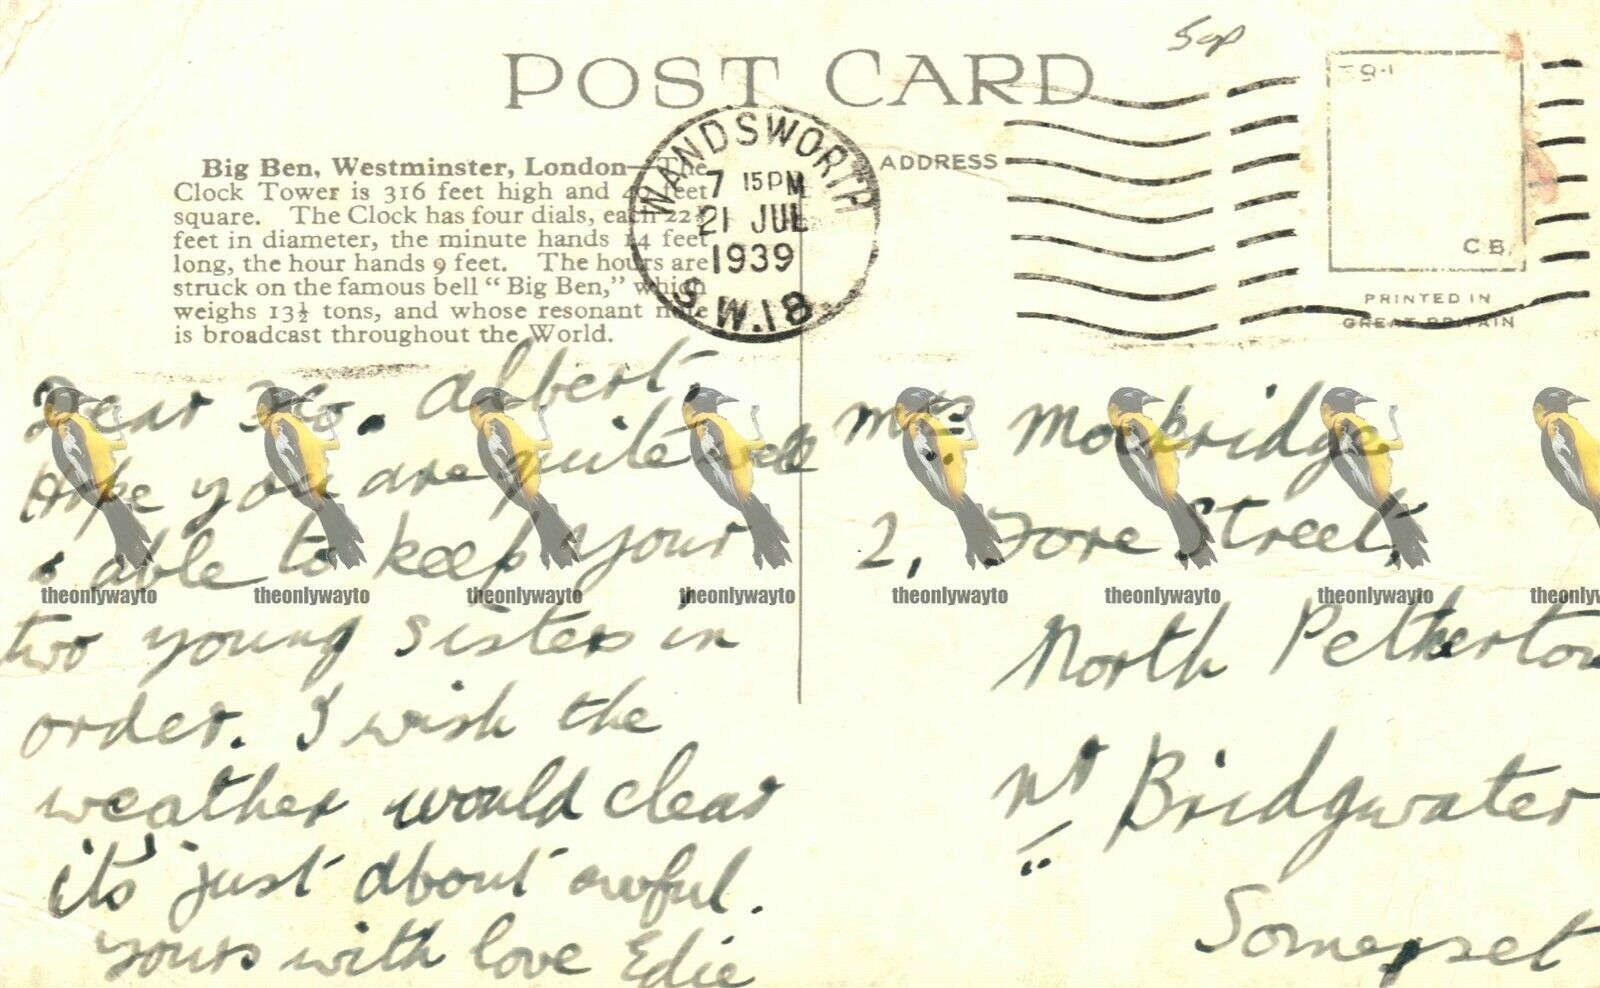 50p
POST CARD
Big Ben, Westminster, London—The
Clock Tower is 316 feet high and 40 feet
square. The Clock has four dials, each 22½
feet in diameter, the minute hands 14 feet
long, the hour hands 9 feet. The hours are
struck on the famous bell "Big Ben," which
weighs 13½ tons, and whose resonant note
is broadcast throughout the World.
WANDSWORTH
7 15PM
21 JUL
1939
S.W.18.
ADDRESS
C B.
PRINTED IN
GREAT BRITAIN
Dear Albert,
Hope you are quite well
& able to keep your
two young sisters in
order. I wish the
weather would clear
it's just about awful.
Yours with love Edie
Mrs Mockridge
2, Fore Street,
North Petherton
Nr Bridgwater
Somerset
theonlywayto theonlywayto theonlywayto theonlywayto theonlywayto theonlywayto theonlywayto theonlyw